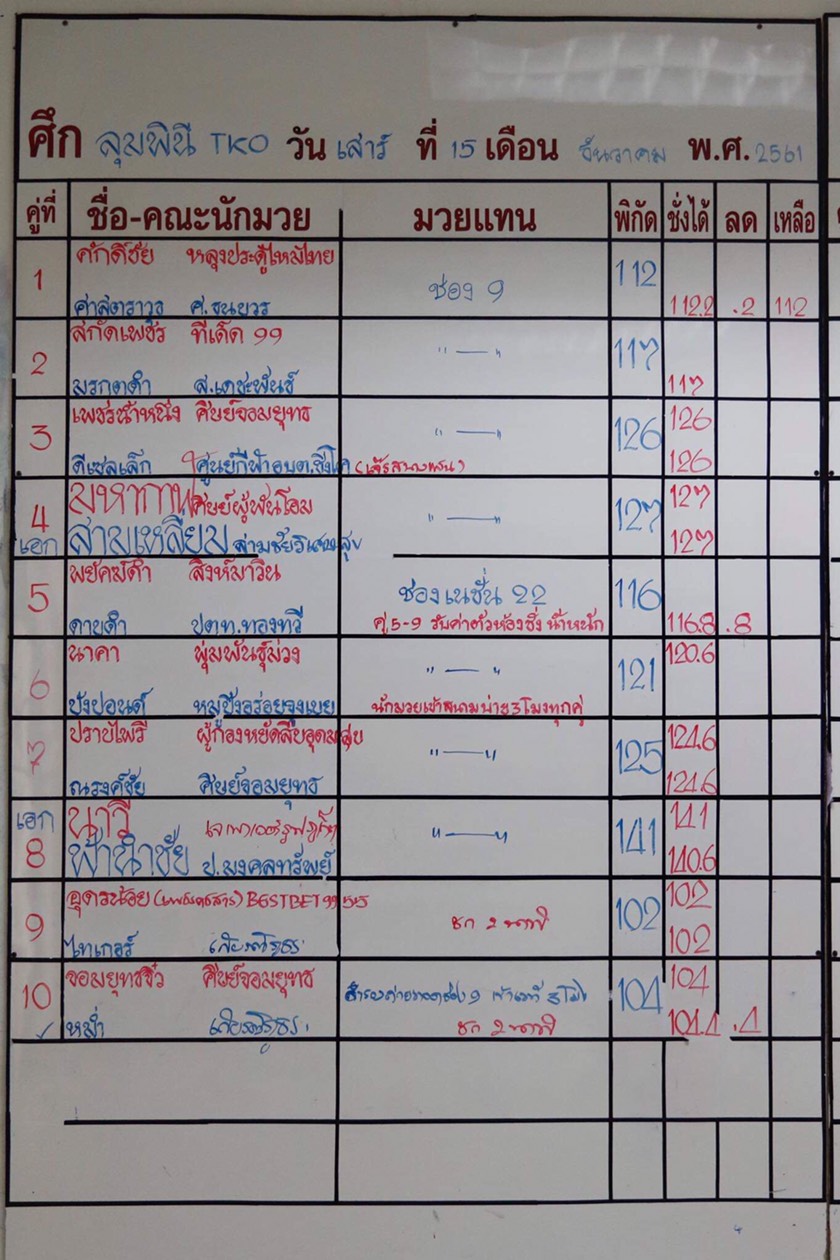 ศึก ลุมพินี TKO วัน เสาร์ ที่ 15 เดือน ธันวาคม พ.ศ. 2561
คู่ที่ ชื่อ-คณะนักมวย มวยแทน พิกัด ชั่งได้ ลด เหลือ
1 ศักดิ์ชัย หลุงประดู่ไหมไทย ช่อง 9 112
ศาสตราวุธ ศ.ธนยวร 112.2 .2 112
2 สกัดเพชร ทีเด็ด 99 "—" 117
มรกตดำ ส.เดชะพันธ์ 117
3 เพชรน้ำหนึ่ง ศิษย์จอมยุทธ "—" 126 126
ดีเซลเล็ก ศูนย์กีฬาอบต.ชิงโค 126
4 มหากาฬ ศิษย์ผู้พันโอม "—" 127 127
เอก สามเหลี่ยม ล่ามชัยวิเศษสุข 127
5 พยัคฆ์ดำ สิงห์มาวิน ช่องเนชั่น 22 116
ดาบดำ ปตท.ทองทวี คู่ 5-9 รับค่าตัวห้องชั่งน้ำหนัก 116.8 .8
6 นาคา พุ่มพันธุ์ม่วง "—" 121 120.6
ปังปอนด์ หมูปิ้งอร่อยจุงเบย นักมวยเข้าสนามบ่าย 3 โมงทุกคู่
7 ปราบไพรี ผู้กองหยัดสืบอุดมสุข "—" 125 124.6
ณรงค์ชัย ศิษย์จอมยุทธ 124.6
เอก นาวี "—" 141 141
8 ฟ้านำชัย ป.มงคลทรัพย์ 140.6
9 อุดรน้อย BESTBET 99 515 ชก 2 นาที 102 102
ไทเกอร์ 102
10 จอมยุทธจิ๋ว ศิษย์จอมยุทธ 104 104
หม่ำ ชก 2 นาที 104.4 .4